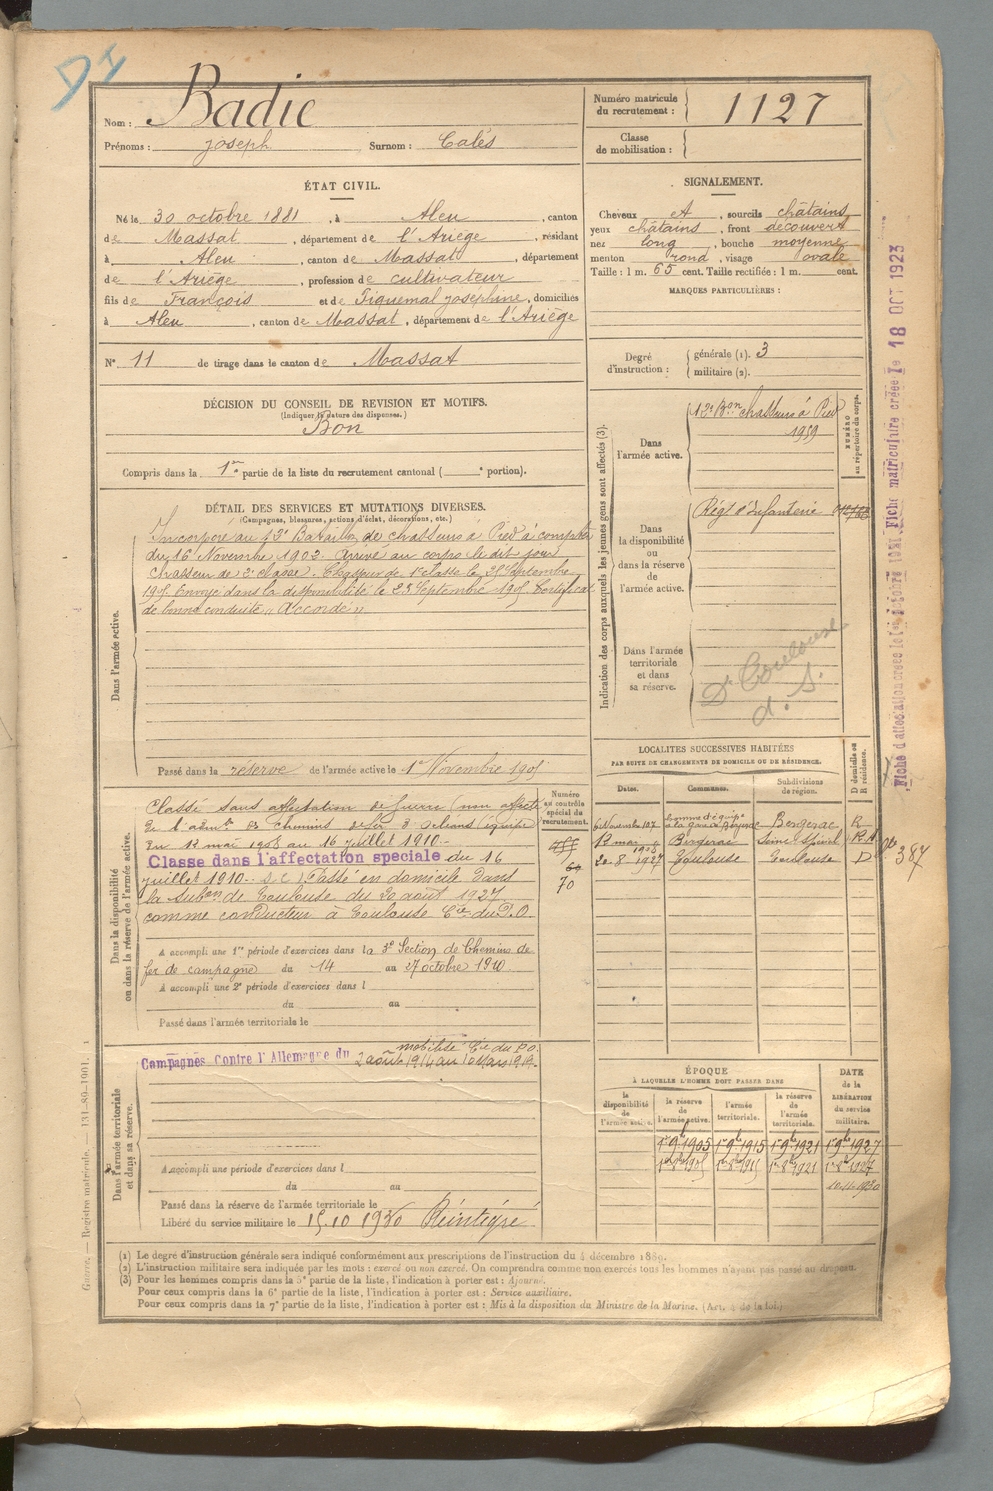 DI
Nom : Badie
Prénoms : Joseph Surnom : Calés
Numéro matricule du recrutement : 1127
Classe de mobilisation :
ÉTAT CIVIL.
Né le 30 octobre 1881, à Aleu, canton
de Massat, département de l'Ariège, résidant
à Aleu, canton de Massat, département
de l'Ariège, profession de cultivateur
fils de François et de Piquemal Joséphine, domiciliés
à Aleu, canton de Massat, département de l'Ariège
N° 11 de tirage dans le canton de Massat
SIGNALEMENT.
Cheveux et, sourcils châtains
yeux châtains, front découvert
nez long, bouche moyenne
menton rond, visage ovale
Taille : 1 m. 65 cent. Taille rectifiée : 1 m. cent.
MARQUES PARTICULIÈRES :
Degré d'instruction : générale (1). 3
militaire (2).
DÉCISION DU CONSEIL DE REVISION ET MOTIFS.
(Indiquer la nature des dispenses.)
Bon
Compris dans la 1re partie de la liste du recrutement cantonal ( e portion).
DÉTAIL DES SERVICES ET MUTATIONS DIVERSES.
(Campagnes, blessures, actions d'éclat, décorations, etc.)
Dans l'armée active.
Incorporé au Bataillon de chasseurs à Pied à compter
du 16 Novembre 1902. Arrivé au corps le dit jour
Chasseur de 2e classe. Chasseur de 1e classe le Septembre
Envoyé dans la disponibilité le 23 Septembre 1905 Certificat
de bonne conduite « Accordé »
Passé dans la réserve de l'armée active le 1er Novembre 1905
Indication des corps auxquels les jeunes gens sont affectés (3).
Dans l'armée active.
12e Bon chasseurs à Pied
1959
NUMÉRO au répertoire du corps.
Dans la disponibilité ou dans la réserve de l'armée active.
Régt d'Infanterie
Dans l'armée territoriale et dans sa réserve.
Toulouse
d. S.
Fiche matriculaire créée le 18 OCT 1923
Fiche d'affectation créée le 1er octobre 1931
Dans la disponibilité ou dans la réserve de l'armée active.
Classé sans affectation de guerre (non affecté
de l'admon des chemins de fer d'Orléans (équipe
du 12 mai 1908 au 16 juillet 1910.
Classe dans l'affectation speciale du 16
juillet 1910. Passé en domicile dans
la subon de Toulouse du 20 août 1927
comme conducteur à Toulouse Cie du P.O.
A accompli une 1re période d'exercices dans la 3e Section de Chemins de
fer de campagne du 14 au 27 octobre 1910
A accompli une 2e période d'exercices dans l
du au
Passé dans l'armée territoriale le
Numéro au contrôle spécial du recrutement.
70
LOCALITÉS SUCCESSIVES HABITÉES
PAR SUITE DE CHANGEMENTS DE DOMICILE OU DE RÉSIDENCE.
Dates. Communes. Subdivisions de région. D domicile ou R résidence.
6 Novembre 1907 homme d'équipe à la gare de Bergerac Bergerac R
12 mai 1908 Bergerac R
20-8-1927 Toulouse Toulouse D
387
Dans l'armée territoriale et dans sa réserve.
Campagnes Contre l'Allemagne du 2 août 1914 au 10 Mars 1919.
mobilisé Cie du P.O.
A accompli une période d'exercices dans l
du au
Passé dans la réserve de l'armée territoriale le
Libéré du service militaire le 15 10 1930 Réintégré
ÉPOQUE
À LAQUELLE L'HOMME DOIT PASSER DANS
la disponibilité de l'armée active. la réserve de l'armée active. l'armée territoriale. la réserve de l'armée territoriale.
DATE de la LIBÉRATION du service militaire.
1er 9bre 1905 1er 9bre 1915 1er 9bre 1921 1er 9bre 1927
(1) Le degré d'instruction générale sera indiqué conformément aux prescriptions de l'instruction du 4 décembre 1889.
(2) L'instruction militaire sera indiquée par les mots : exercé ou non exercé. On comprendra comme non exercés tous les hommes n'ayant pas passé au drapeau.
(3) Pour les hommes compris dans la 5e partie de la liste, l'indication à porter est : Ajourné.
Pour ceux compris dans la 6e partie de la liste, l'indication à porter est : Service auxiliaire.
Pour ceux compris dans la 7e partie de la liste, l'indication à porter est : Mis à la disposition du Ministre de la Marine. (Art. 4 de la loi.)
Guerre. — Registre matricule. — 131-89-1901.